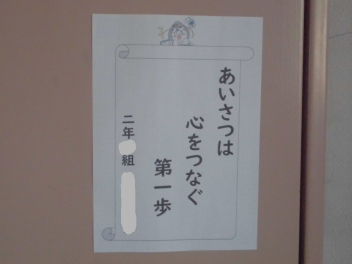 あいさつは
心をつなぐ
第一歩
二年 組